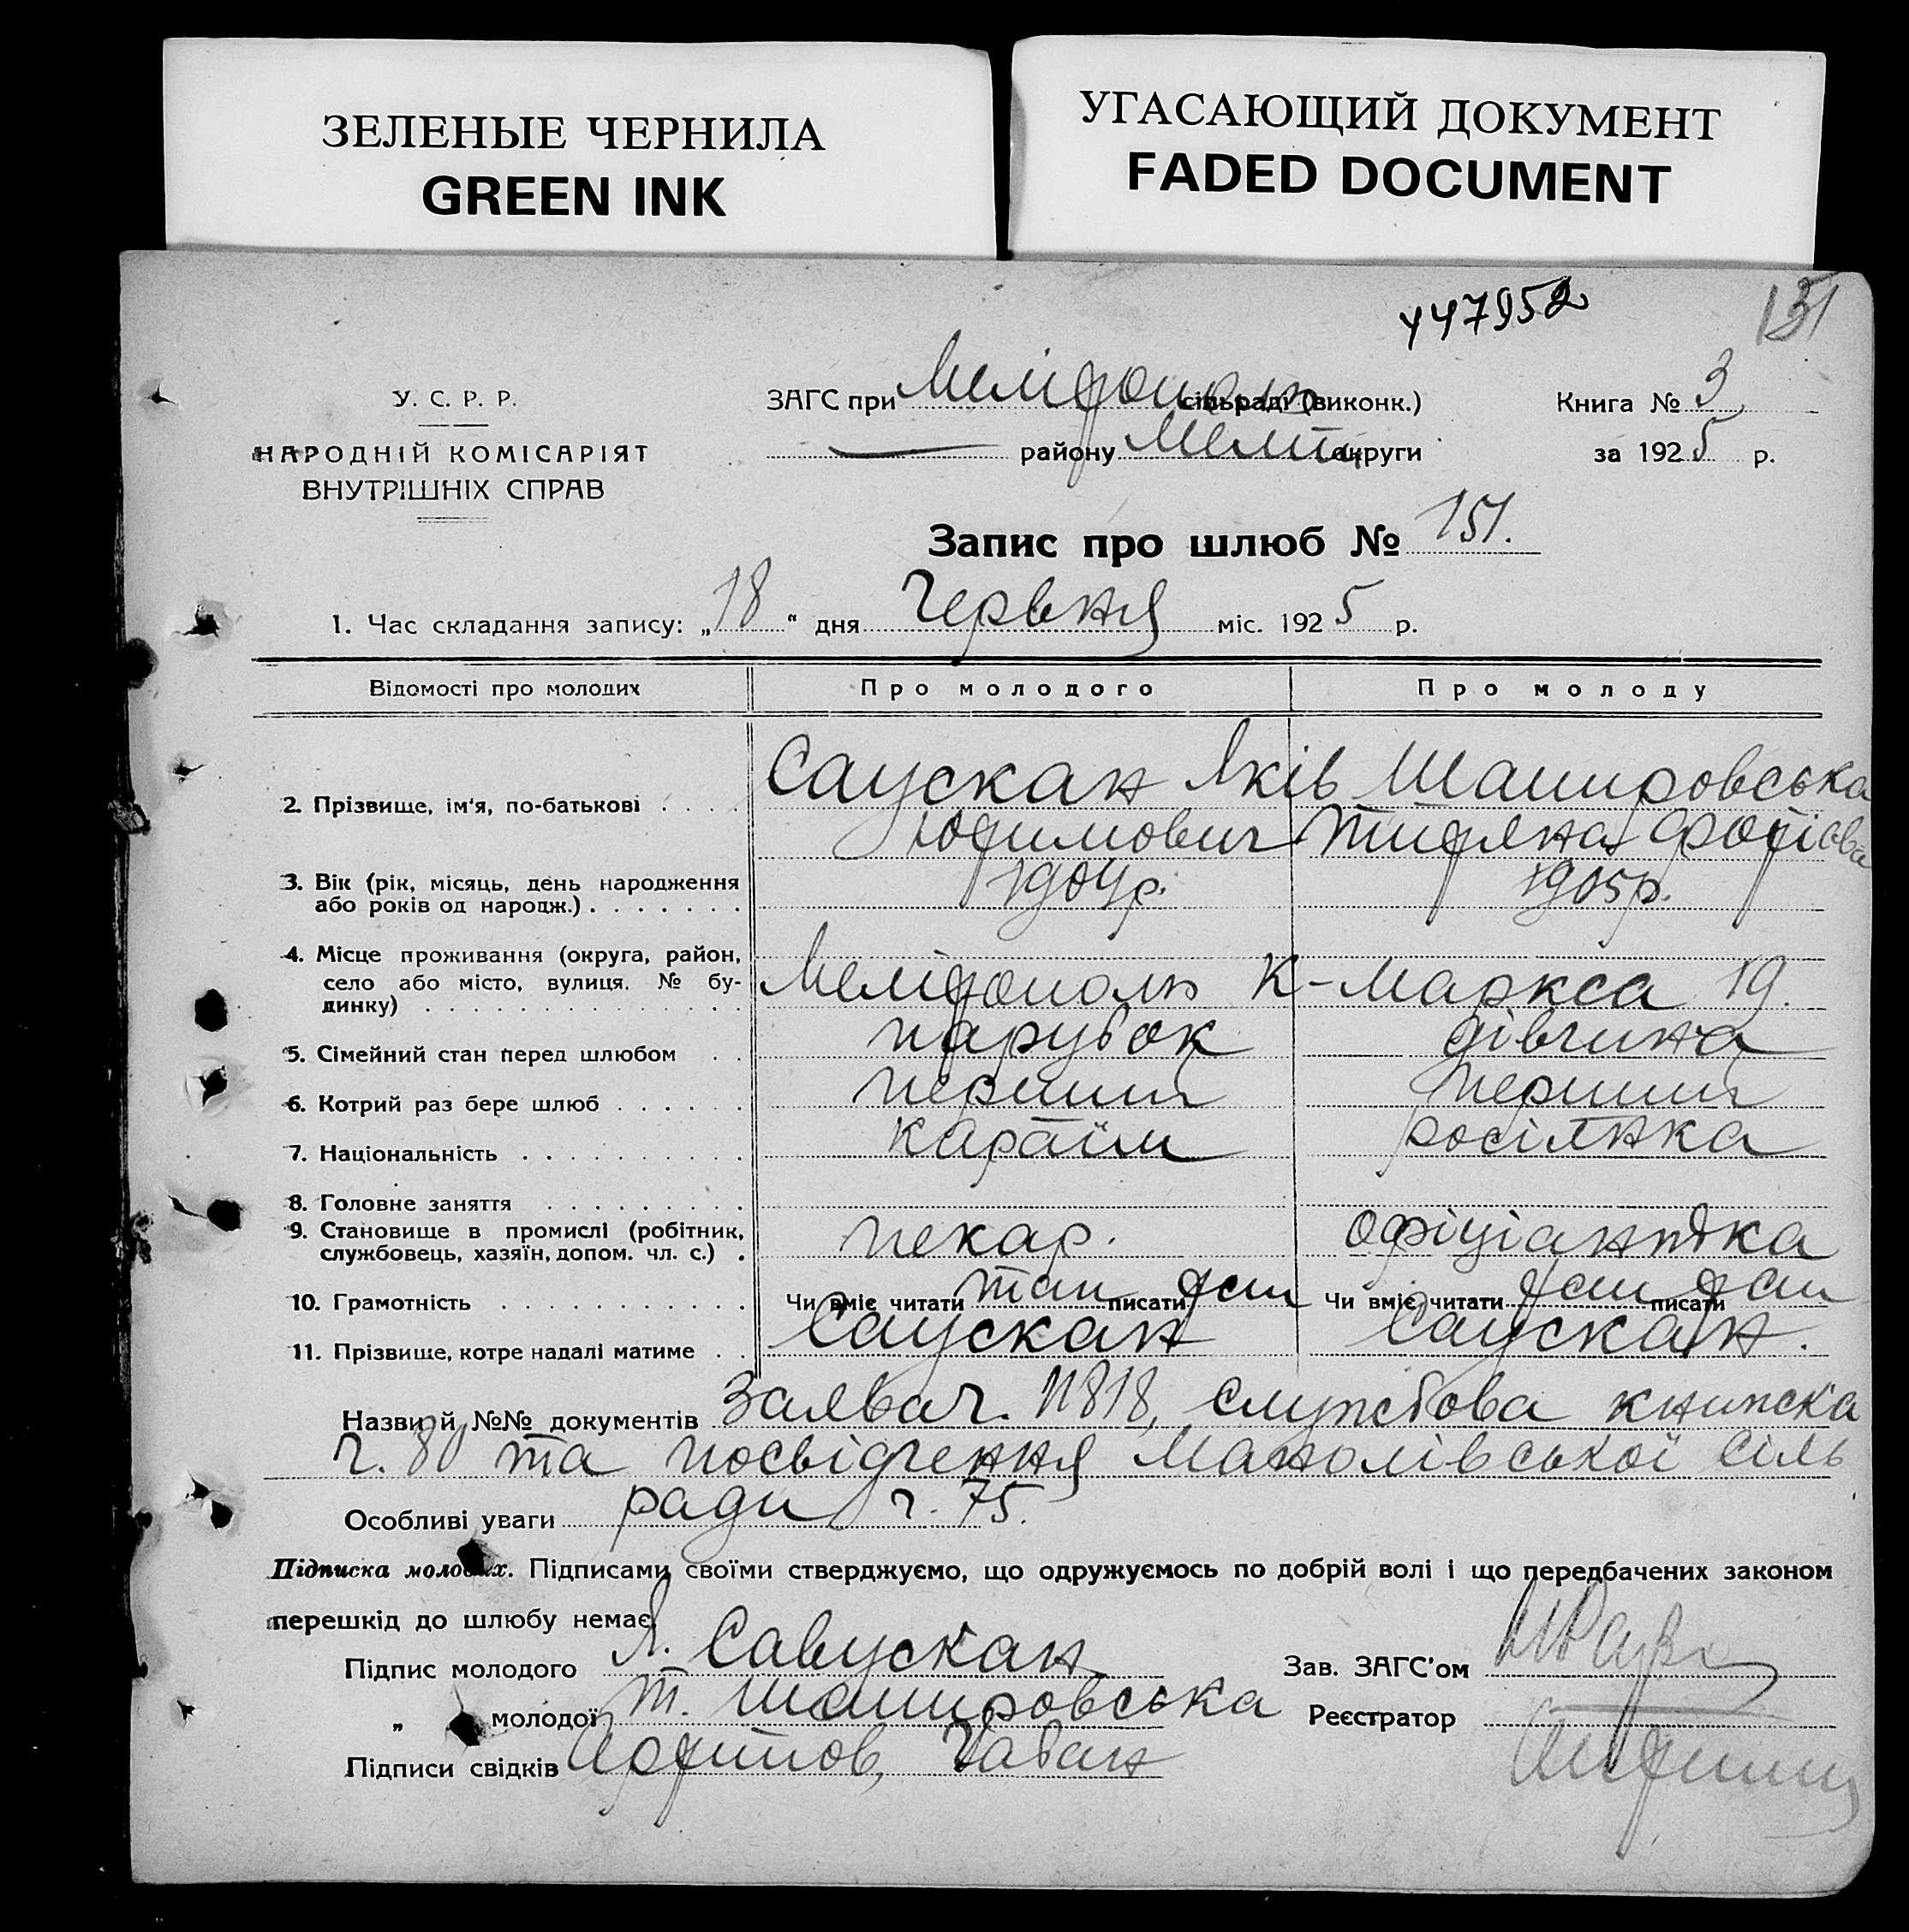 ЗЕЛЕНЫЕ ЧЕРНИЛА
GREEN INK
УГАСАЮЩИЙ ДОКУМЕНТ
FADED DOCUMENT
447952
151
У. С. Р. Р.
НАРОДНІЙ КОМІСАРІЯТ
ВНУТРІШНІХ СПРАВ
ЗАГС при Мелітополь сільраді (виконк.)
— району Меліт. округи
Книга № 3
за 1925 р.
Запис про шлюб № 151.
1. Час складання запису: „18“ дня Червня міс. 1925 р.
Відомості про молодих Про молодого Про молоду
2. Прізвище, ім'я, по-батькові . . . . Саускан Яків Шапировська
Юфимович Тит'яна
3. Вік (рік, місяць, день народження 1904р. 1905р.
або років од народж.) . . . . . . .
4. Місце проживання (округа, район,
село або місто, вулиця. № бу- Мелітополь К-Маркса 19.
динку) . . . . . . . . . . . . . .
5. Сімейний стан перед шлюбом . . парубок дівчина
6. Котрий раз бере шлюб . . . . . . перший перший
7. Національність . . . . . . . . . . караїм росіянка
8. Головне заняття . . . . . . . . .
9. Становище в промислі (робітник, пекар. офіціантка
службовець, хазяїн, допом. чл. с.) .
10. Грамотність . . . . . . . . . . . Чи вміє читати так писати так Чи вміє читати так писати так
11. Прізвище, котре надалі матиме . . Саускан Саускан.
Назви й №№ документів Заява ч. 11818, службова книжска
ч. 80 та посвідчення Манолівської сіль
Особливі уваги ради ч. 75.
Підписка молодих. Підписами своїми стверджуємо, що одружуємось по добрій волі і що передбачених законом
перешкід до шлюбу немає.
Підпис молодого Я. Савускан Зав. ЗАГС'ом
„ молодої Т. Шапировська Реєстратор
Підписи свідків